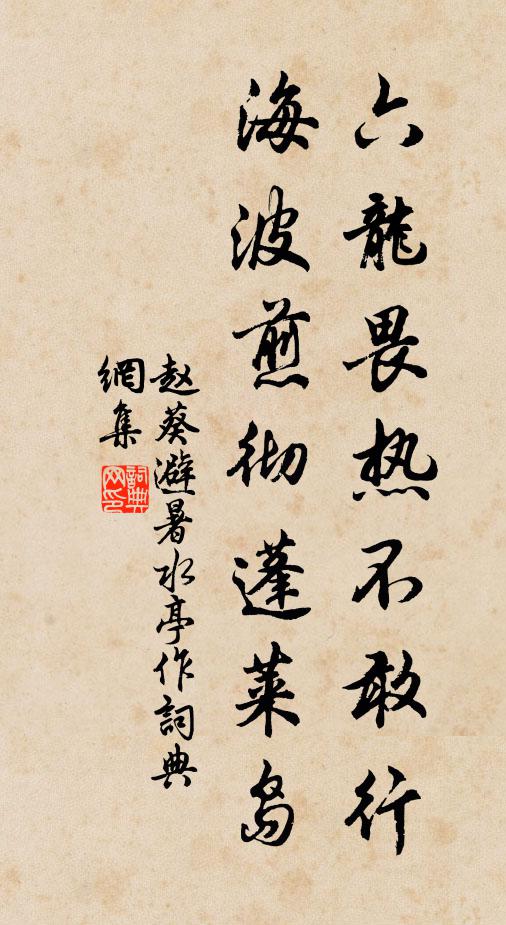 六龍畏热不敢行
海波煎彻蓬莱岛
赵葵避暑水亭作詞典
網集
詞典网印